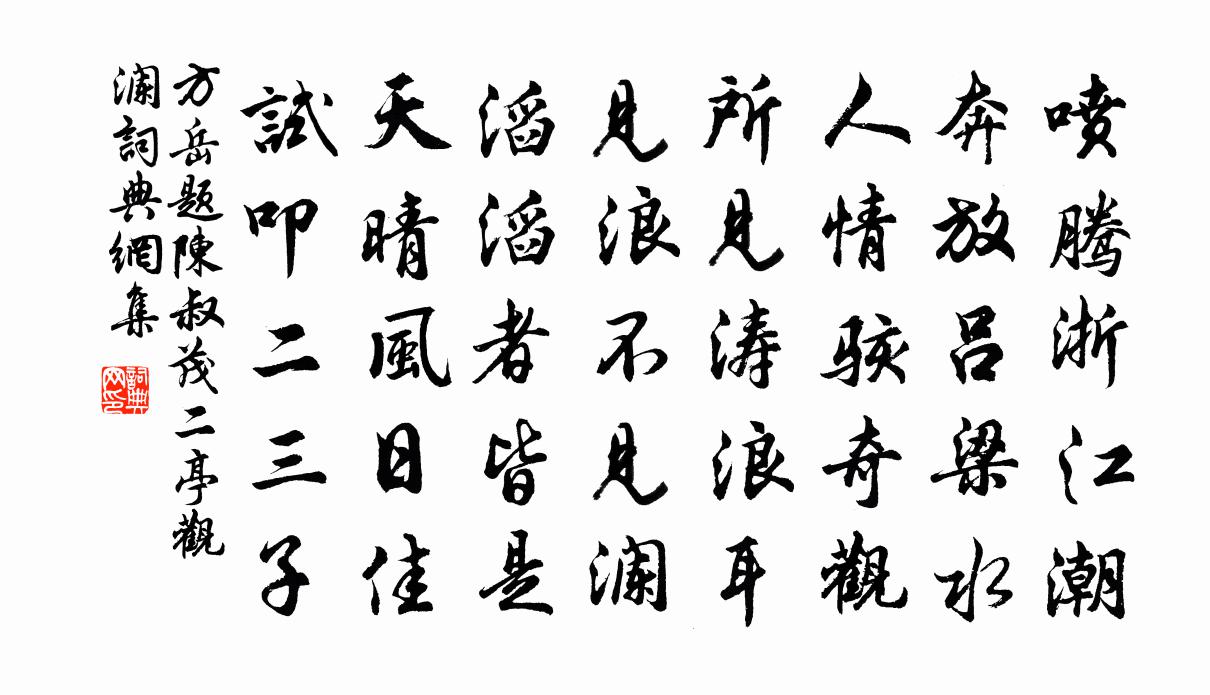 喷腾浙江潮
奔放吕梁水
人情骇奇觀
所見涛浪耳
見浪不見澜
滔滔者皆是
天晴風日佳
試叩二三子
方岳题陳叔茂二亭觀
澜詞典網集
詞典网印